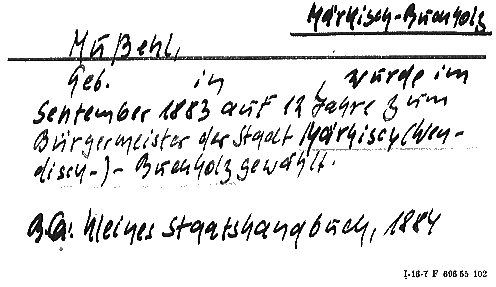 Märkisch-Buchholz
Mußehl,
Geb. in , wurde im
September 1883 auf 12 Jahre zum
Bürgermeister der Stadt Märkisch (Wen-
disch-) - Buchholz gewählt.
Kleines Staatshandbuch, 1884
I-16-7 F 696 55 102